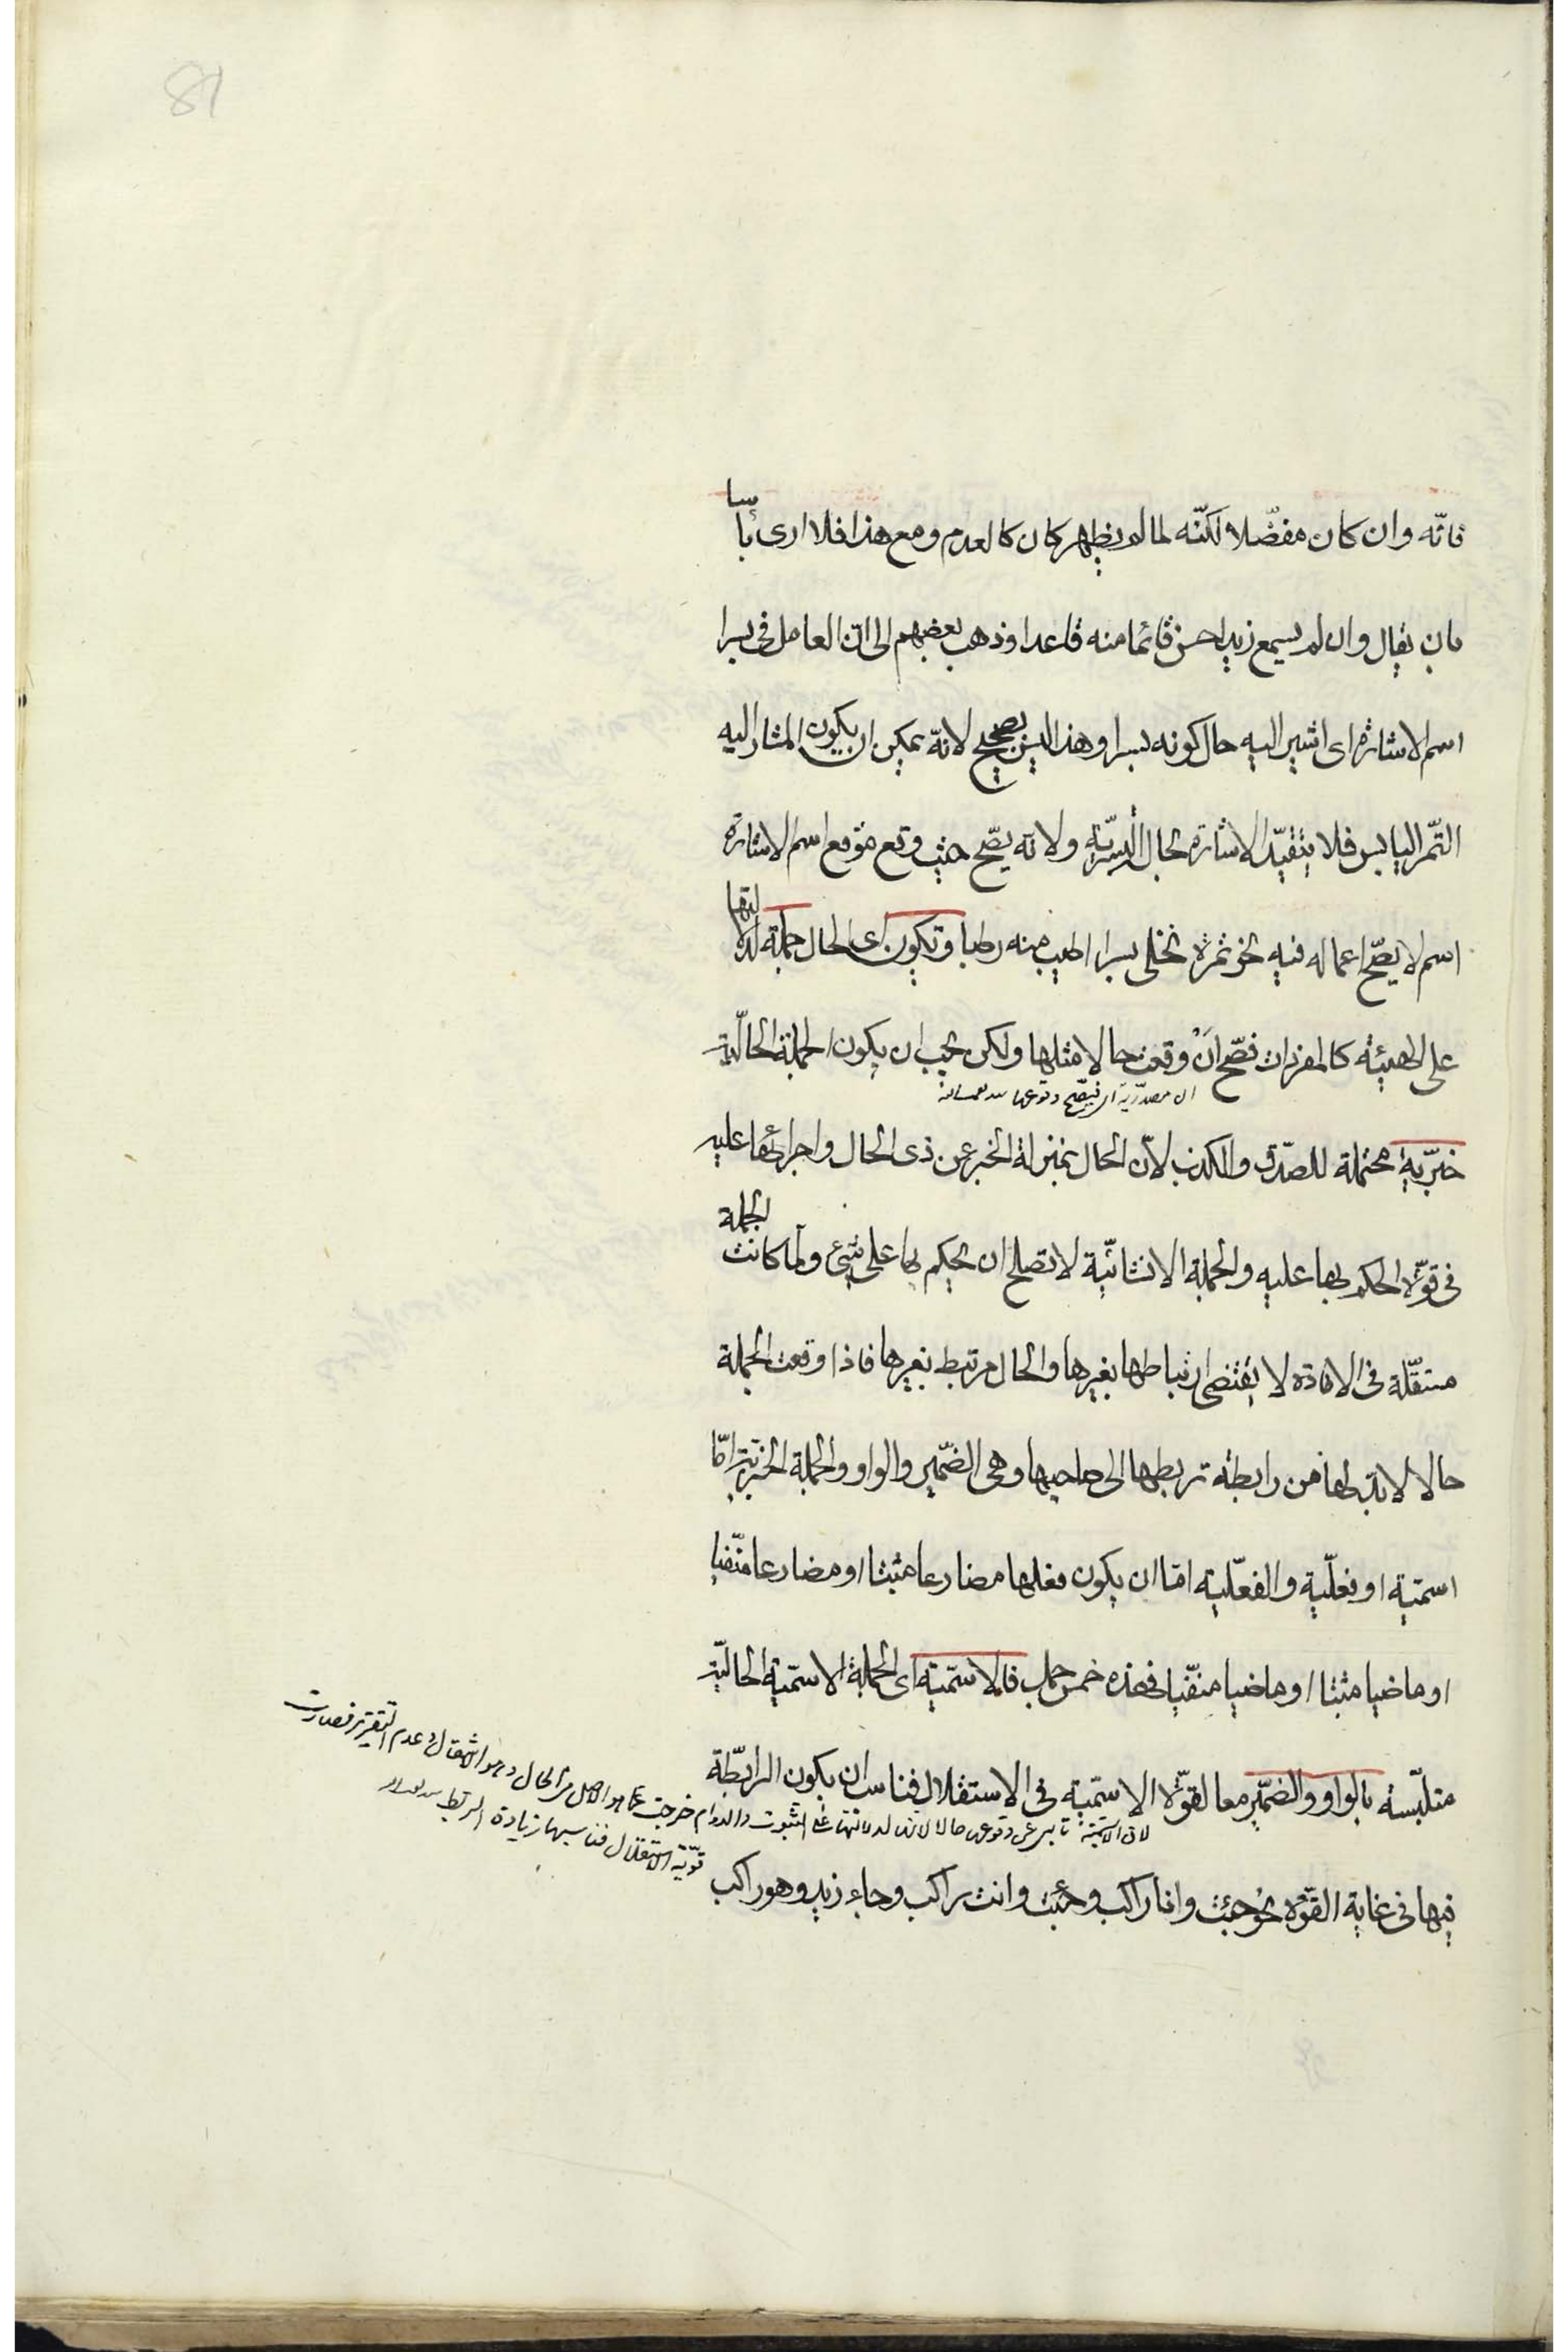 81
فانّه وان كان مفضّلا لكنّه لما لم يظهر كان كالعدم ومع هذا فلا ارى بأسا
بان يقال وان لم يسمع زيد احسن قائما منه قاعدا وذهب بعضهم الى انّ العامل فى بسرا
اسم الاشارة اى اشير اليه حال كونه بسرا وهذا ليس بصحيح لانّه يمكن ان يكون المشار اليه
التّمر اليابس فلا يتقيّد الاشارة بحال البسريّة ولانّه يصّح حيث وقع موقع اسم الاشارة
اسم لا يصّح اعماله فيه نحو ثمرة نخلى بسرا اطيب منه رطبا وتكون اى الحال جملة لدلالتها
على الهيئة كالمفردات فصّح أنْ وقعت حالا مثلها ولكن يجب ان يكون الجملة الحاليّة
ان مصدريّة اى فيصّح وقوعها
خبريّة محتملة للصّدق والكذب لانّ الحال بمنزلة الخبر عن ذى الحال واجرائها عليه
فى قوّة الحكم بها عليه والجملة الانشائيّة لا تصلح ان يحكم بها على شىء ولمّا كانت الجملة
مستقلّة فى الافادة لا يقتضى ارتباطها بغيرها والحال مرتبط بغيرها فاذا وقعت الجملة
حالا لا بدّ لها من رابطة تربطها الى صاحبها وهى الضّمير والواو والجملة الخبريّة امّا
اسميّة او فعليّة والفعليّة امّا ان يكون فعلها مضارعا مثبتا او مضارعا منفّيا
او ماضيا مثبتا او ماضيا منفّيا فهذه خمس جمل فالاسميّة اى الجملة الاسميّة الحاليّة
متلبّسة بالواو والضّمير معا لقوّة الاسميّة فى الاستقلال فناسب ان يكون الرابطة
لان الاسميّة وقوعها حالا لدلالتها على الثبوت والدوام خرجت عما هو الاصل من الحال وهو الانتقال وعدم التقرير فصارت
قويّة الاستقلال فناسبها زيادة الربط
فيها فى غاية القوّة نحو جئت وانا راكب وجئت وانت راكب وجاء زيد وهو راكب